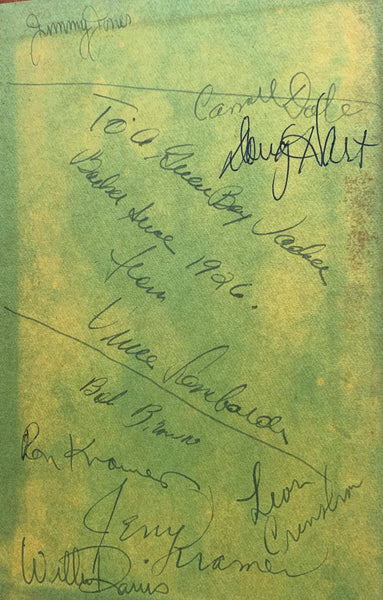 Jimmy Jones
Carroll Dale
Doug Hart
To A Green Bay Packer
Backer Since 1926.
from
Vince Lombardi
Bob Brown
Ron Kramer
Leon
Crenshaw
Jerry
Kramer
Willie Davis